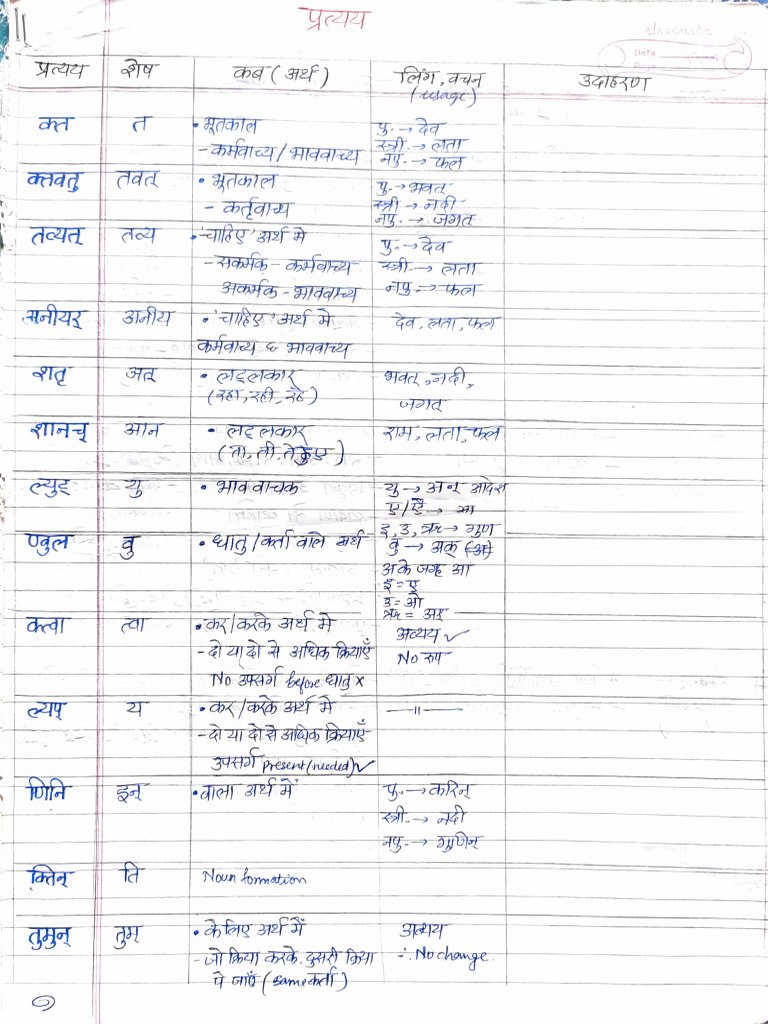 11
प्रत्यय
classmate
Date
Page
प्रत्यय शेष कब (अर्थ) लिंग, वचन उदाहरण
(usage)
क्त त • भूतकाल पु. → देव
- कर्मवाच्य / भाववाच्य स्त्री. → लता
नपु. → फल
क्तवतु तवत् • भूतकाल पु. → भवत्
- कर्तृवाच्य स्त्री → नदी
नपु. → जगत्
तव्यत् तव्य • 'चाहिए' अर्थ मे पु. → देव
- सकर्मक - कर्मवाच्य स्त्री. → लता
अकर्मक - भाववाच्य नपु → फल
अनीयर् अनीय • 'चाहिए' अर्थ मे देव, लता, फल
कर्मवाच्य & भाववाच्य
शतृ अत् • लट्लकार भवत्, नदी,
(रहा, रही, रहे) जगत्
शानच् आन • लट्लकार राम, लता, फल
(ता, ती, ते हुए)
ल्युट् यु • भाववाचक यु → अन् आदेश
ए/ऐ →
इ, उ, ऋ → गुण
ण्वुल वु • धातु/कर्ता वाले अर्थ वु → अक् (अ)
अ के जगह आ
इ = ए
उ = ओ
ऋ = अर्
क्त्वा त्वा • कर/करके अर्थ मे अव्यय ✓
- दो या दो से अधिक क्रियाएँ No रूप
No उपसर्ग before धातु x
ल्यप् य • कर/करके अर्थ मे —॥—
- दो या दो से अधिक क्रियाएँ
उपसर्ग present (needed) ✓
णिनि इन् • वाला अर्थ में पु. → करिन्
स्त्री. → नदी
नपु → गुणिन्
क्तिन् ति Noun formation
तुमुन् तुम् • के लिए अर्थ में अव्यय
- जो क्रिया करके दुसरी क्रिया ∴ No change
पे जाएँ (same कर्ता)